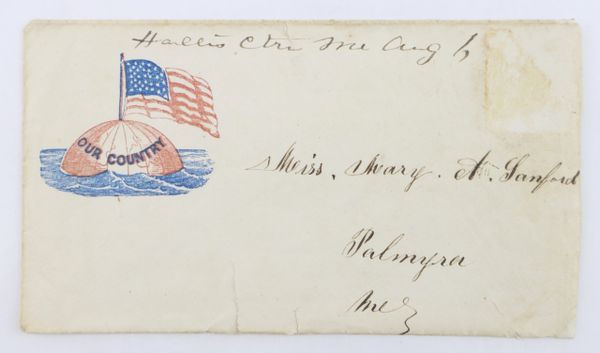 Hallis Ctre Me Aug 6
OUR COUNTRY
Miss. Mary. A. Sanford
Palmyra
Me